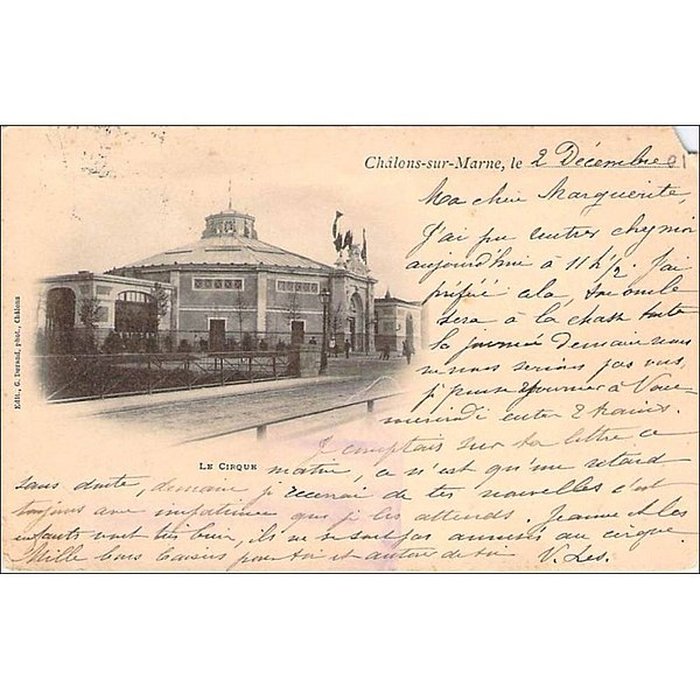 Châlons-sur-Marne, le 2 Décembre 01
Ma chère Marguerite,
J'ai pu rentrer chez moi
aujourd'hui à 11 h 1/2. J'ai
préféré cela,
sera à la chasse toute
la journée demain nous
ne nous serions pas vus,
je pense retourner à
mercredi entre 2 trains.
Je comptais sur ta lettre ce
matin, ce n'est qu'un retard
sans doute, demain je recevrai de tes nouvelles c'est
toujours avec impatience que je les attends. Jeanne et les
enfants vont très bien, ils ne se sont pas amusés au cirque.
Mille bons baisers pour toi et autour de toi V. Les.
Le Cirque
Edit., G. Durand, phot., Châlons